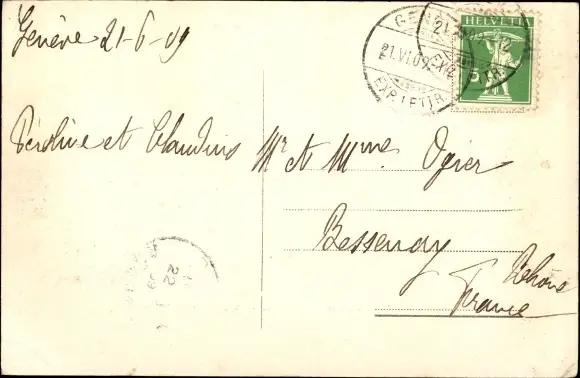 Genève 21-6-09
et Claudius
Mr et Mme. Ogier
Bessenay
Rhône
France
HELVETIA
5
GEN
21.VI.09.
EXP. LETTR.
22